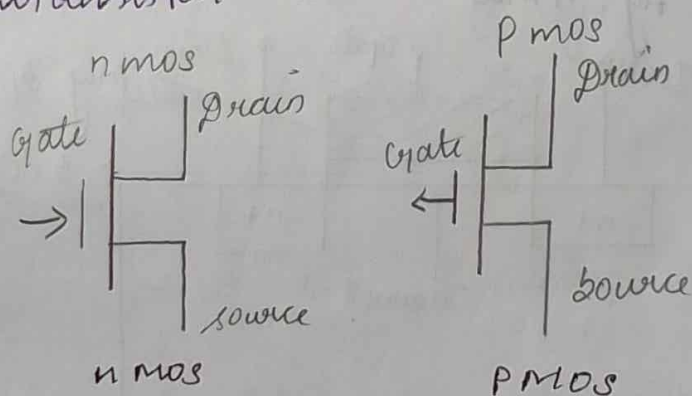 n mos
Drain
Gate
source
n mos
P mos
Drain
Gate
Source
PMOS